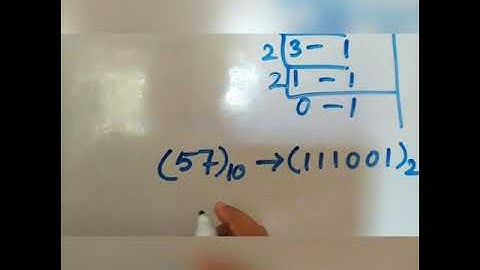 2 3 - 1
2 1 - 1
0 - 1
(57)10 → (111001)2